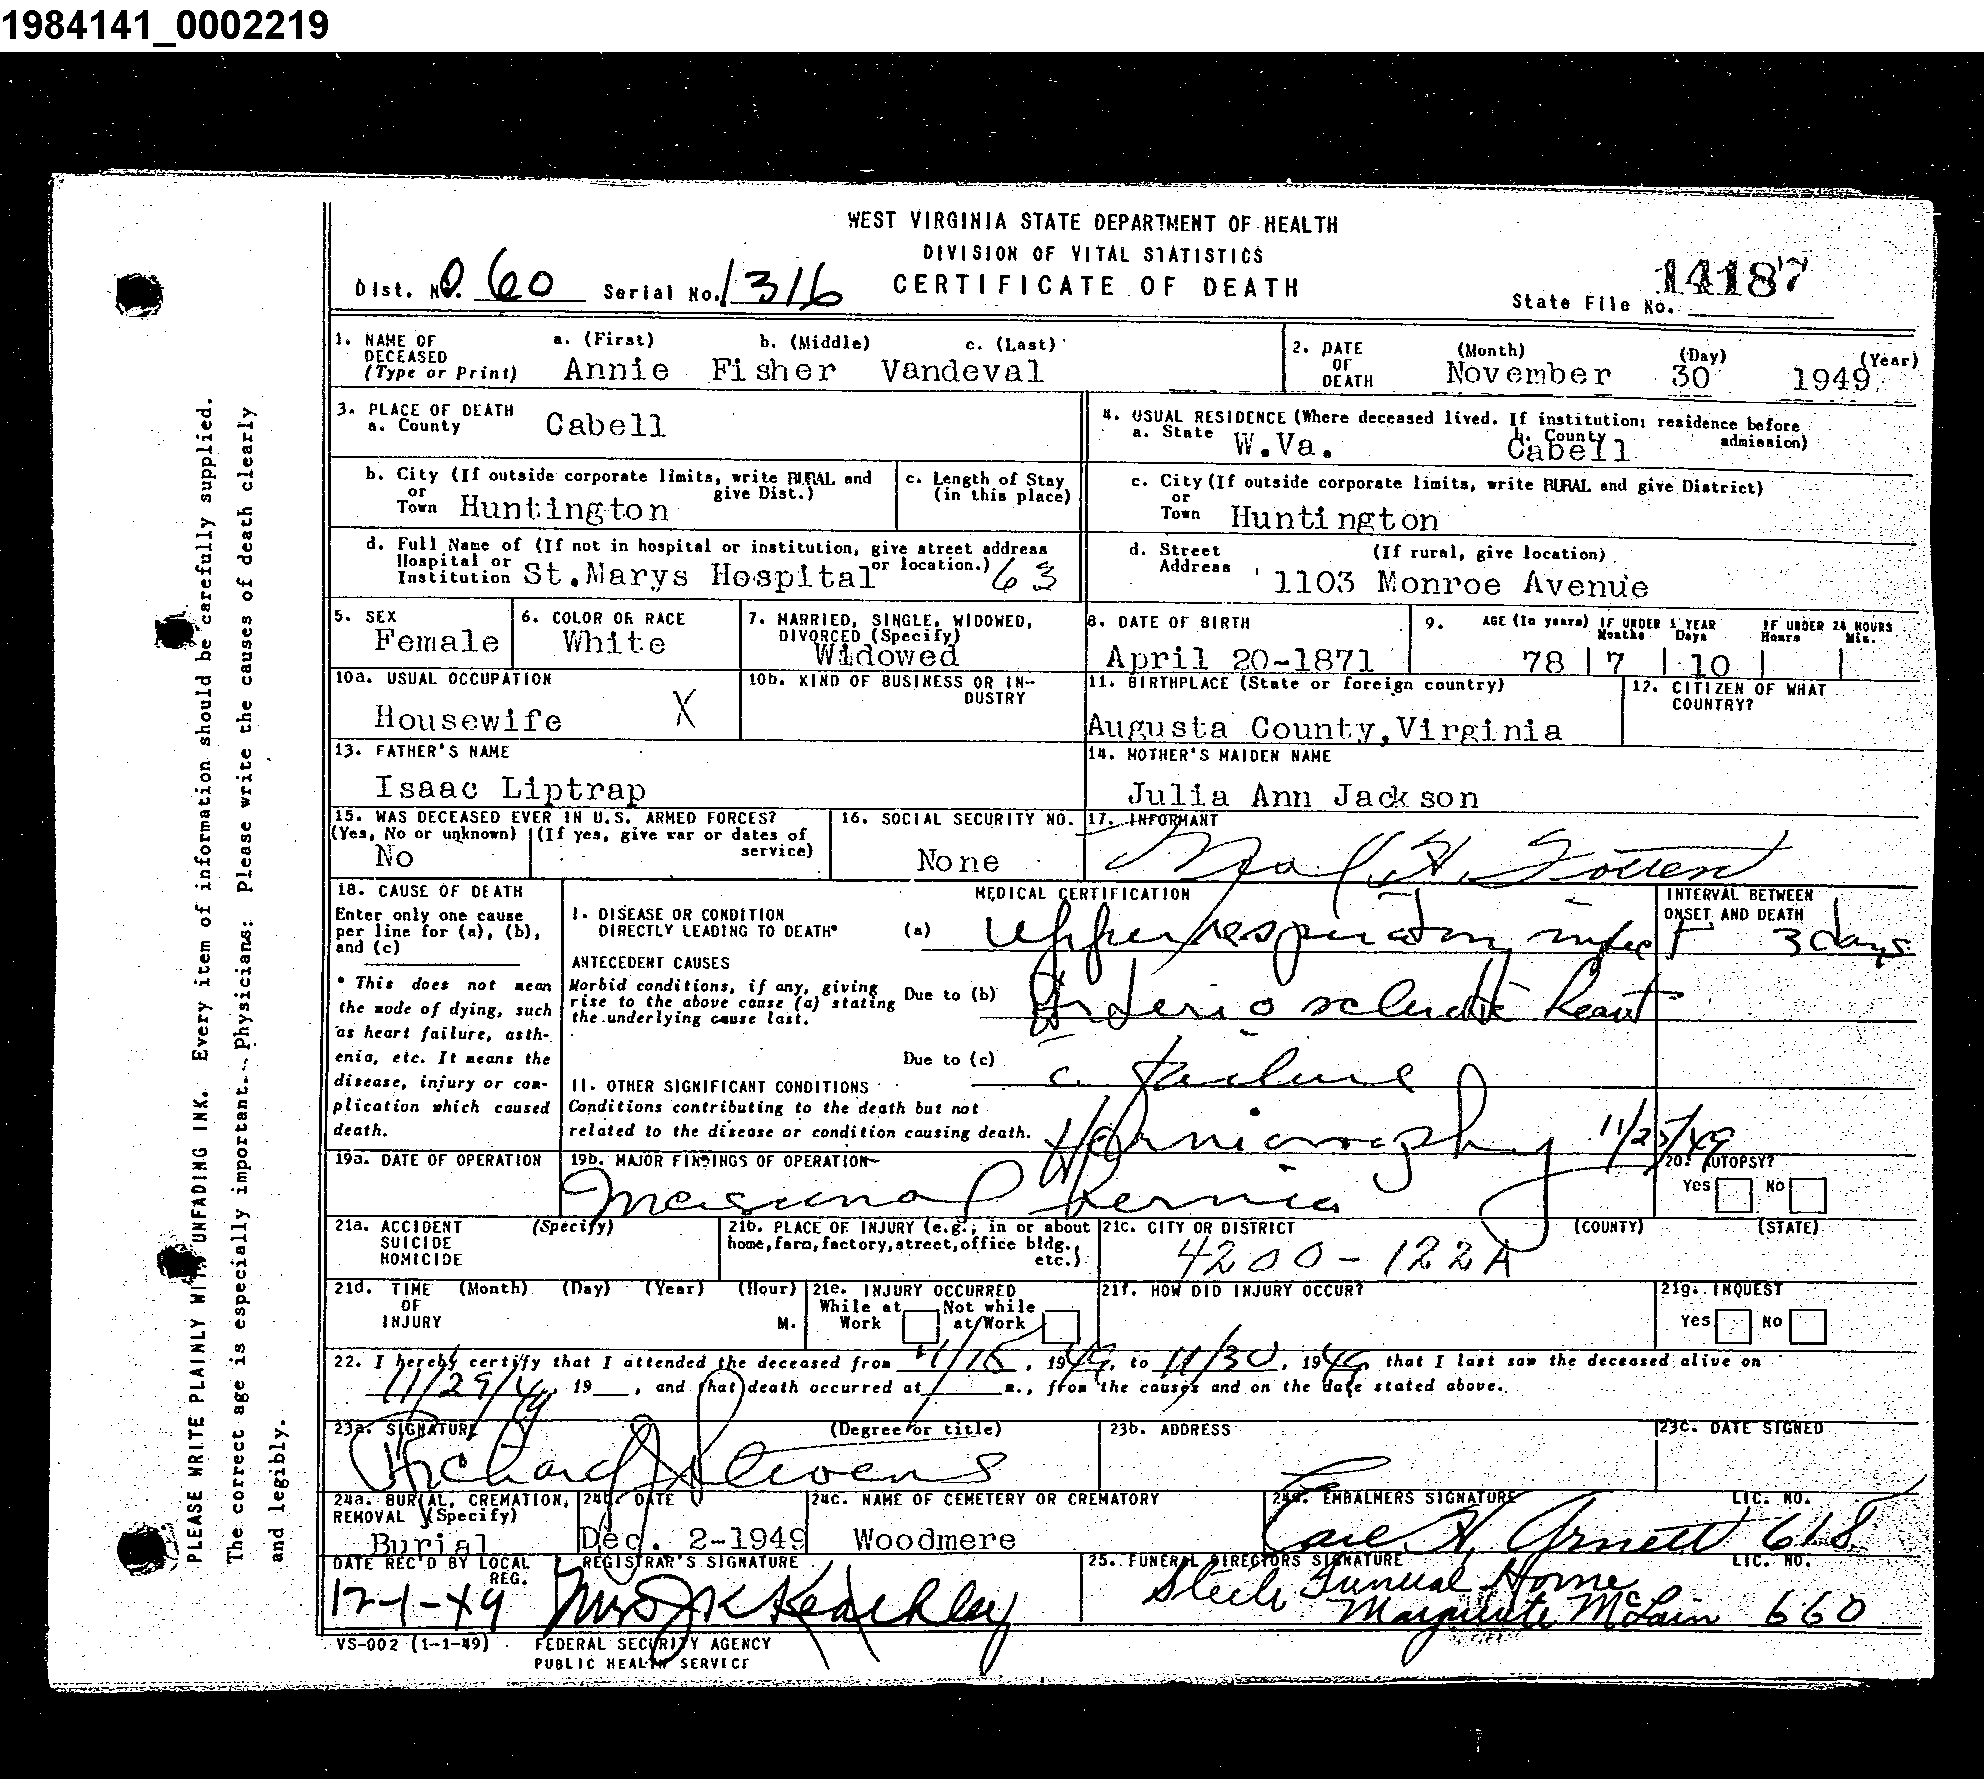 1984141_0002219
WEST VIRGINIA STATE DEPARTMENT OF HEALTH
DIVISION OF VITAL STATISTICS
CERTIFICATE OF DEATH
Dist. No. 060 Serial No. 1316
State File No. 14187
1. NAME OF DECEASED (Type or Print) a. (First) b. (Middle) c. (Last)
Annie Fisher Vandeval
2. DATE OF DEATH (Month) (Day) (Year)
November 30 1949
3. PLACE OF DEATH
a. County Cabell
4. USUAL RESIDENCE (Where deceased lived. If institution; residence before admission)
a. State W.Va. b. County Cabell
b. City (If outside corporate limits, write RURAL and give Dist.)
or Town Huntington
c. Length of Stay (in this place)
c. City (If outside corporate limits, write RURAL and give District)
or Town Huntington
d. Full Name of (If not in hospital or institution, give street address or location.)
Hospital or Institution St.Marys Hospital 63
d. Street Address (If rural, give location)
1103 Monroe Avenue
5. SEX
Female
6. COLOR OR RACE
White
7. MARRIED, SINGLE, WIDOWED, DIVORCED (Specify)
Widowed
8. DATE OF BIRTH
April 20-1871
9. AGE (In years) IF UNDER 1 YEAR Months Days IF UNDER 24 HOURS Hours Min.
78 7 10
10a. USUAL OCCUPATION
Housewife X
10b. KIND OF BUSINESS OR INDUSTRY
11. BIRTHPLACE (State or foreign country)
Augusta County,Virginia
12. CITIZEN OF WHAT COUNTRY?
13. FATHER'S NAME
Isaac Liptrap
14. MOTHER'S MAIDEN NAME
Julia Ann Jackson
15. WAS DECEASED EVER IN U.S. ARMED FORCES?
(Yes, No or unknown) (If yes, give war or dates of service)
No
16. SOCIAL SECURITY NO.
None
17. INFORMANT
18. CAUSE OF DEATH
Enter only one cause per line for (a), (b), and (c)
* This does not mean the mode of dying, such as heart failure, asthenia, etc. It means the disease, injury or complication which caused death.
MEDICAL CERTIFICATION
INTERVAL BETWEEN ONSET AND DEATH
I. DISEASE OR CONDITION DIRECTLY LEADING TO DEATH* (a) Upper respiratory infect 3 days
ANTECEDENT CAUSES
Morbid conditions, if any, giving rise to the above cause (a) stating the underlying cause last.
Due to (b) Arteriosclerotic heart
Due to (c) c. failure
II. OTHER SIGNIFICANT CONDITIONS
Conditions contributing to the death but not related to the disease or condition causing death.
Herniorraphy 11/25/49
19a. DATE OF OPERATION
19b. MAJOR FINDINGS OF OPERATION
hernia
20. AUTOPSY?
Yes No
21a. ACCIDENT SUICIDE HOMICIDE (Specify)
21b. PLACE OF INJURY (e.g., in or about home, farm, factory, street, office bldg., etc.)
21c. CITY OR DISTRICT (COUNTY) (STATE)
4200-122A
21d. TIME OF INJURY (Month) (Day) (Year) (Hour) M.
21e. INJURY OCCURRED
While at Work Not while at Work
21f. HOW DID INJURY OCCUR?
21g. INQUEST
Yes No
22. I hereby certify that I attended the deceased from 11/15, 1949, to 11/30, 1949, that I last saw the deceased alive on
11/29/49, 19__, and that death occurred at ____ m., from the causes and on the date stated above.
23a. SIGNATURE (Degree or title)
Richard J Stevens
23b. ADDRESS
23c. DATE SIGNED
24a. BURIAL, CREMATION, REMOVAL (Specify)
Burial
24b. DATE
Dec. 2-1949
24c. NAME OF CEMETERY OR CREMATORY
Woodmere
24d. EMBALMERS SIGNATURE LIC. NO.
Carl H. Arnett 618
DATE REC'D BY LOCAL REG.
12-1-49
REGISTRAR'S SIGNATURE
25. FUNERAL DIRECTORS SIGNATURE LIC. NO.
Steele Funeral Home
Marguerite McLain 660
VS-002 (1-1-49)
FEDERAL SECURITY AGENCY
PUBLIC HEALTH SERVICE
PLEASE WRITE PLAINLY WITH UNFADING INK. Every item of information should be carefully supplied.
The correct age is especially important. Physicians: Please write the causes of death clearly
and legibly.